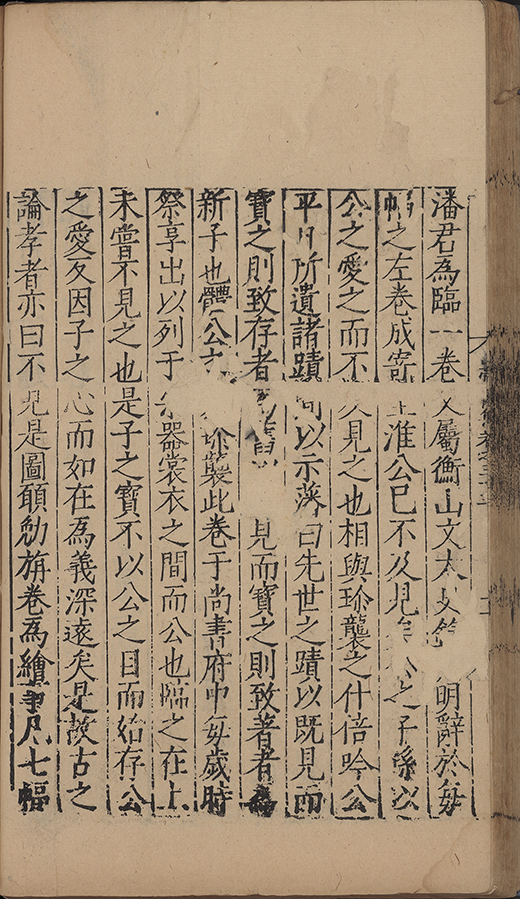 潘君為臨一卷又屬衡山文太史 明辭於每
幅之左卷成寄 淮公已不及見 公之子孫以
公之愛之而不 見之也相與珍襲之什倍吟公
平日所遺諸蹟 以示 曰先世之蹟以既見而
寶之則致存者 見而寶之則致著者為
新子也體公 襲此卷于尚書府中每歲時
祭享出以列于 器裳衣之間而公也臨之在上
未嘗不見之也是子之寶不以公之目而始存公
之愛反因子之心而如在為義深遠矣是故古之
論孝者亦曰不 見是圖願勉旃卷為繪事凡七幅